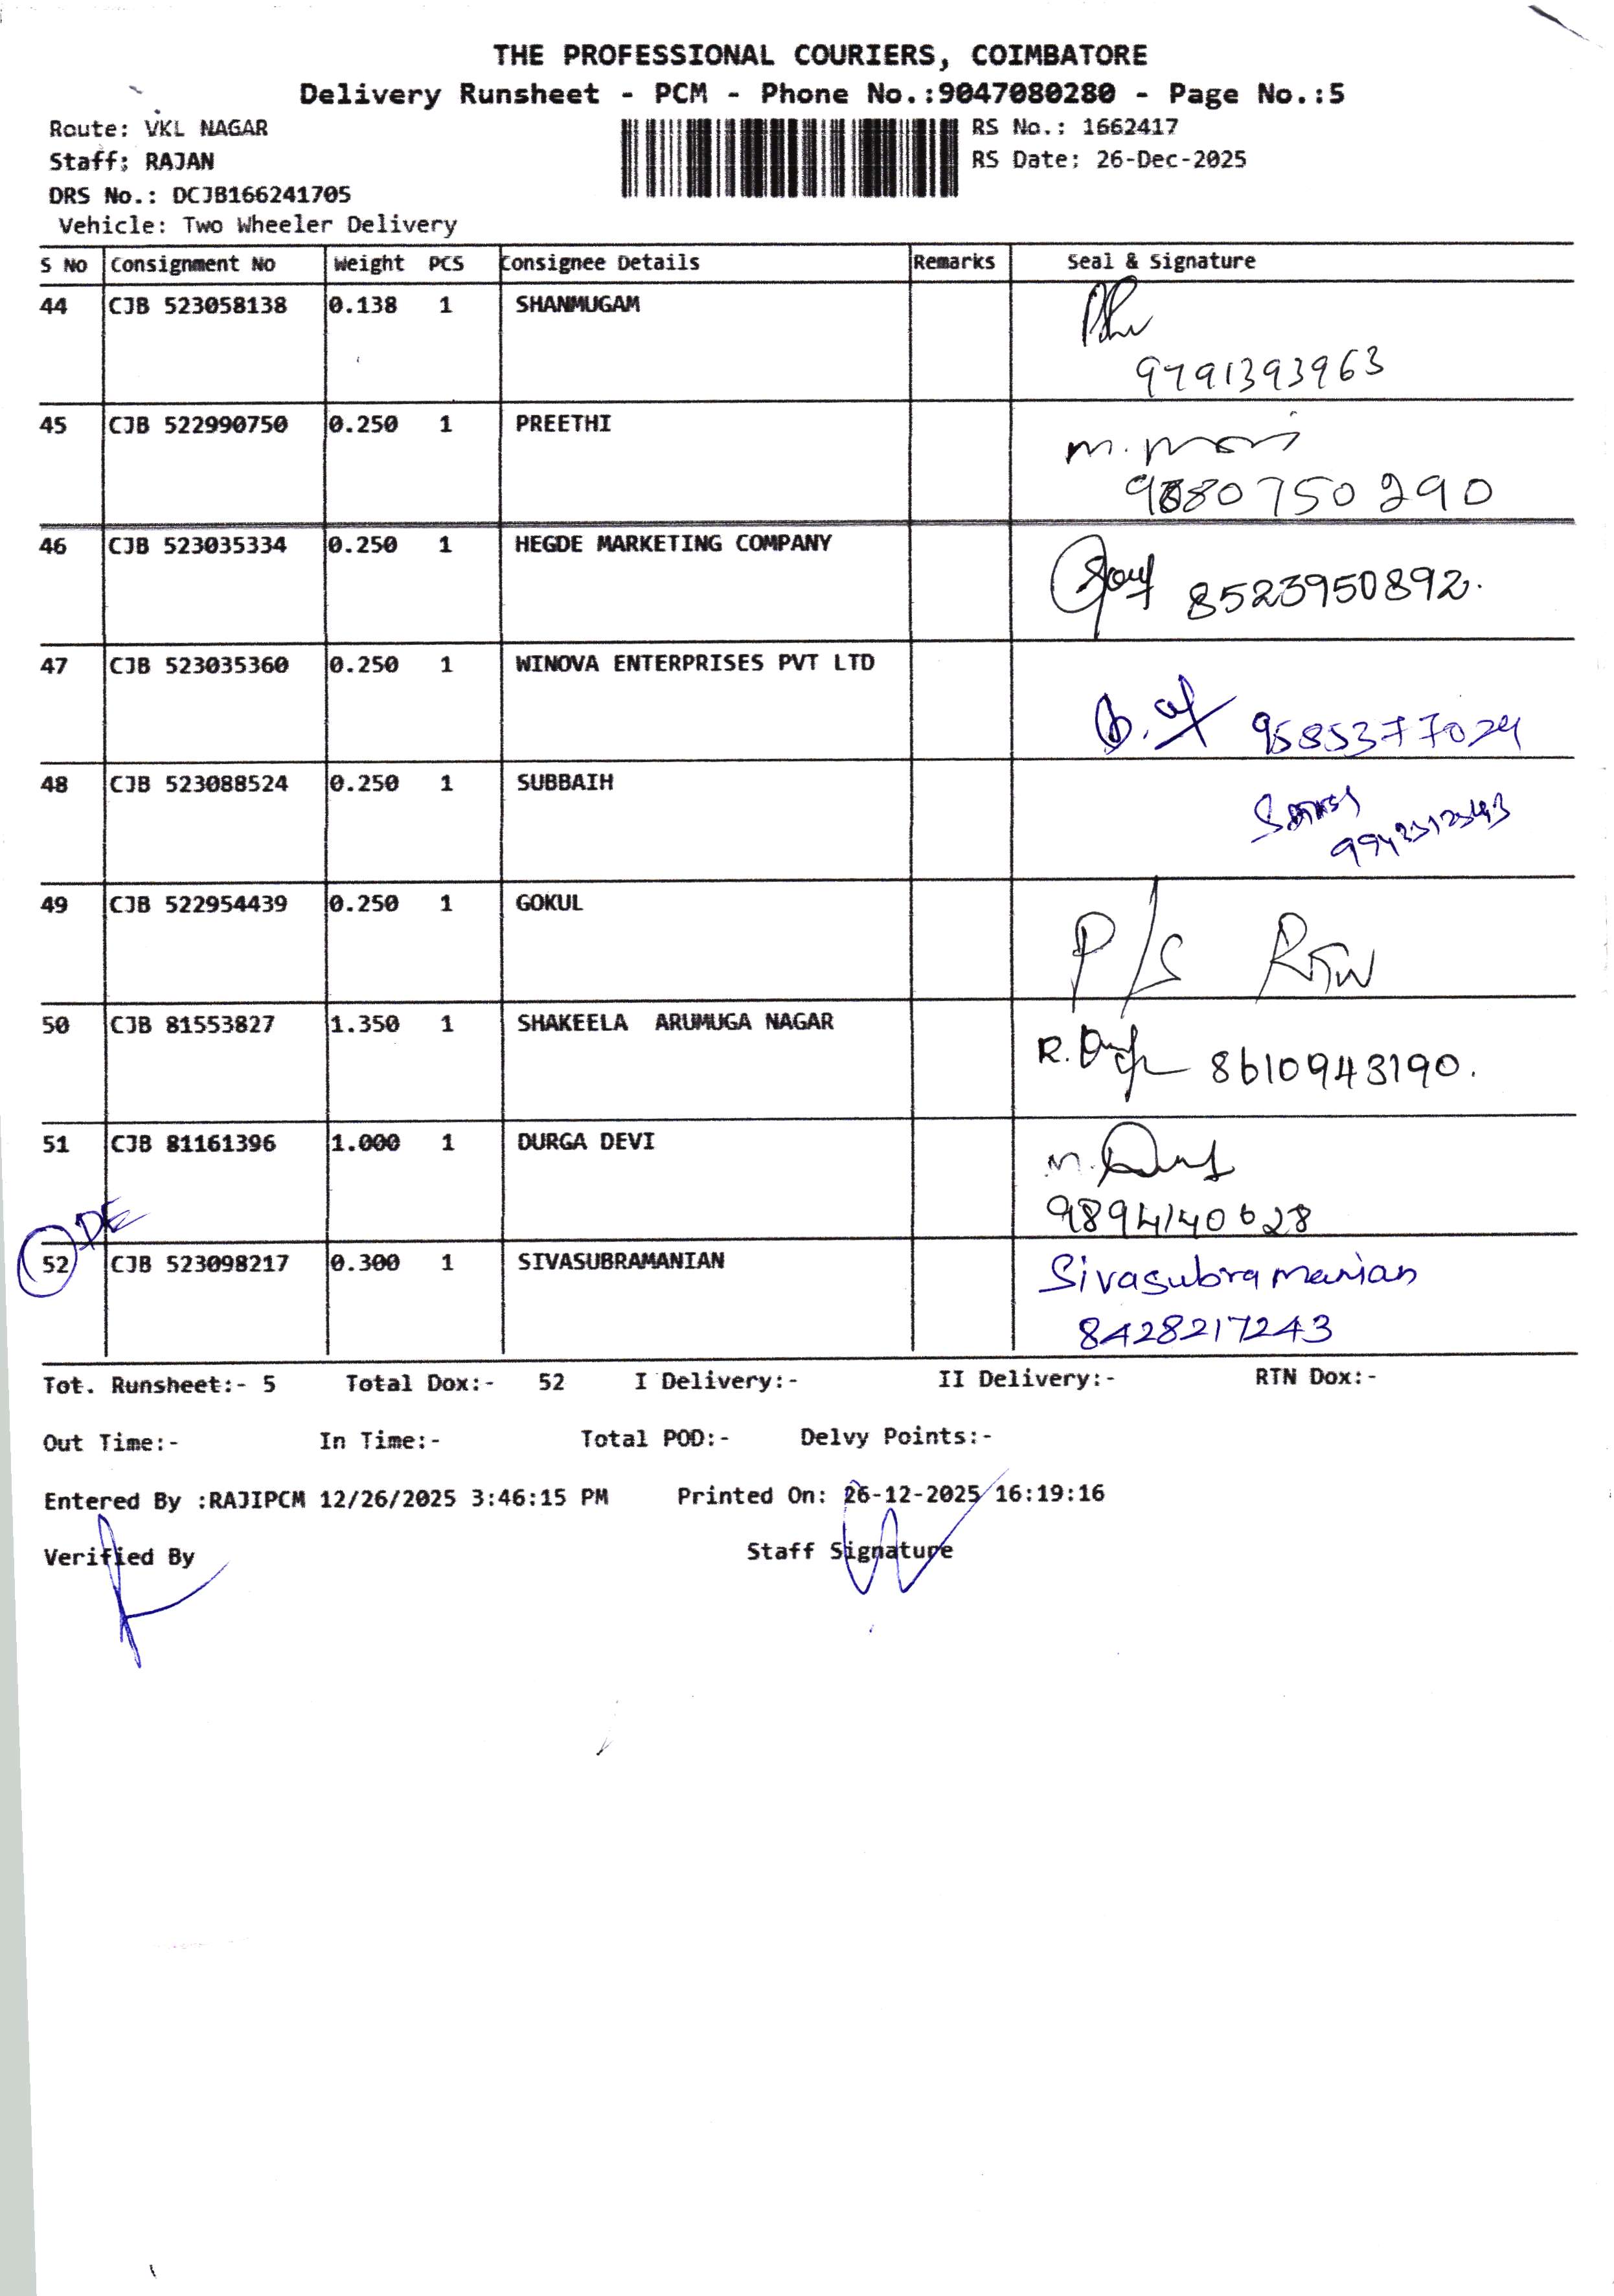 THE PROFESSIONAL COURIERS, COIMBATORE
Delivery Runsheet - PCM - Phone No.:9047080280 - Page No.:5
Route: VKL NAGAR
RS No.: 1662417
Staff: RAJAN
RS Date: 26-Dec-2025
DRS No.: DCJB166241705
Vehicle: Two Wheeler Delivery
S No Consignment No Weight PCS Consignee Details Remarks Seal & Signature
44 CJB 523058138 0.138 1 SHANMUGAM
9791393963
45 CJB 522990750 0.250 1 PREETHI
46 CJB 523035334 0.250 1 HEGDE MARKETING COMPANY
8523950892.
47 CJB 523035360 0.250 1 WINOVA ENTERPRISES PVT LTD
9585377024
48 CJB 523088524 0.250 1 SUBBAIH
49 CJB 522954439 0.250 1 GOKUL
P/S RTN
50 CJB 81553827 1.350 1 SHAKEELA ARUMUGA NAGAR
8610943190.
51 CJB 81161396 1.000 1 DURGA DEVI
9894140628
DE
52 CJB 523098217 0.300 1 SIVASUBRAMANIAN Sivasubramanian
8428217243
Tot. Runsheet:- 5 Total Dox:- 52 I Delivery:- II Delivery:- RTN Dox:-
Out Time:- In Time:- Total POD:- Delvy Points:-
Entered By :RAJIPCM 12/26/2025 3:46:15 PM Printed On: 26-12-2025 16:19:16
Verified By Staff Signature